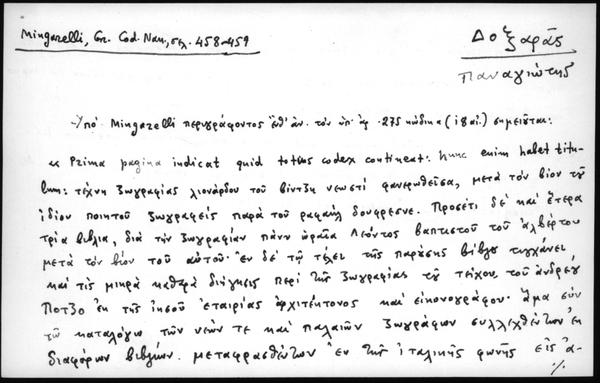 Mingarelli, Gr. Cod. Nan., σελ. 458-459
Δοξαρᾶς
Παναγιώτης
Ὑπό Mingarelli περιγράφοντος ἐνθ' ἀν. τόν ὑπ' ἀρ. 275 κώδικα (ιη αἰ.) σημειοῦται:
« Prima pagina indicat quid totus codex contineat: hunc enim habet titu-
lum: τέχνη ζωγραφίας λιονάρδου τοῦ βίντζη νεωστί φανερωθεῖσα, μετά τόν βίον τοῦ
ἰδίου ποιητοῦ ζωγραφείς παρά τοῦ ραφαήλ δουφρεσνε. Προσέτι δέ καί ἕτερα
τρία βιβλια, διά τήν ζωγραφίαν πάνυ ὡραῖα Λεόντος βαπτιστοῦ τοῦ ἀλβέρτου
μετά τόν βίον τοῦ αὐτοῦ· Ἐν δέ τῷ τέλει τῆς παρούσης βίβλου τυγχάνει
καί τις μικρά καθαρά διήγησις περί τῆς ζωγραφίας τοῦ τείχου, τοῦ ἀνδρέου
Ποτζο ἐκ τῆς ἰησοῦ ἑταιρίας ἀρχιτέκτονος καί εἰκονογράφου. Ἅμα σύν
τῷ καταλόγῳ τῶν νέων τε καί παλαιῶν ζωγράφων συλλεχθέντων ἐκ
διαφόρων βιβλίων. μεταφρασθέντων ἐν τῆς ἰταλικῆς φωνῆς εἰς ἁ-
./.